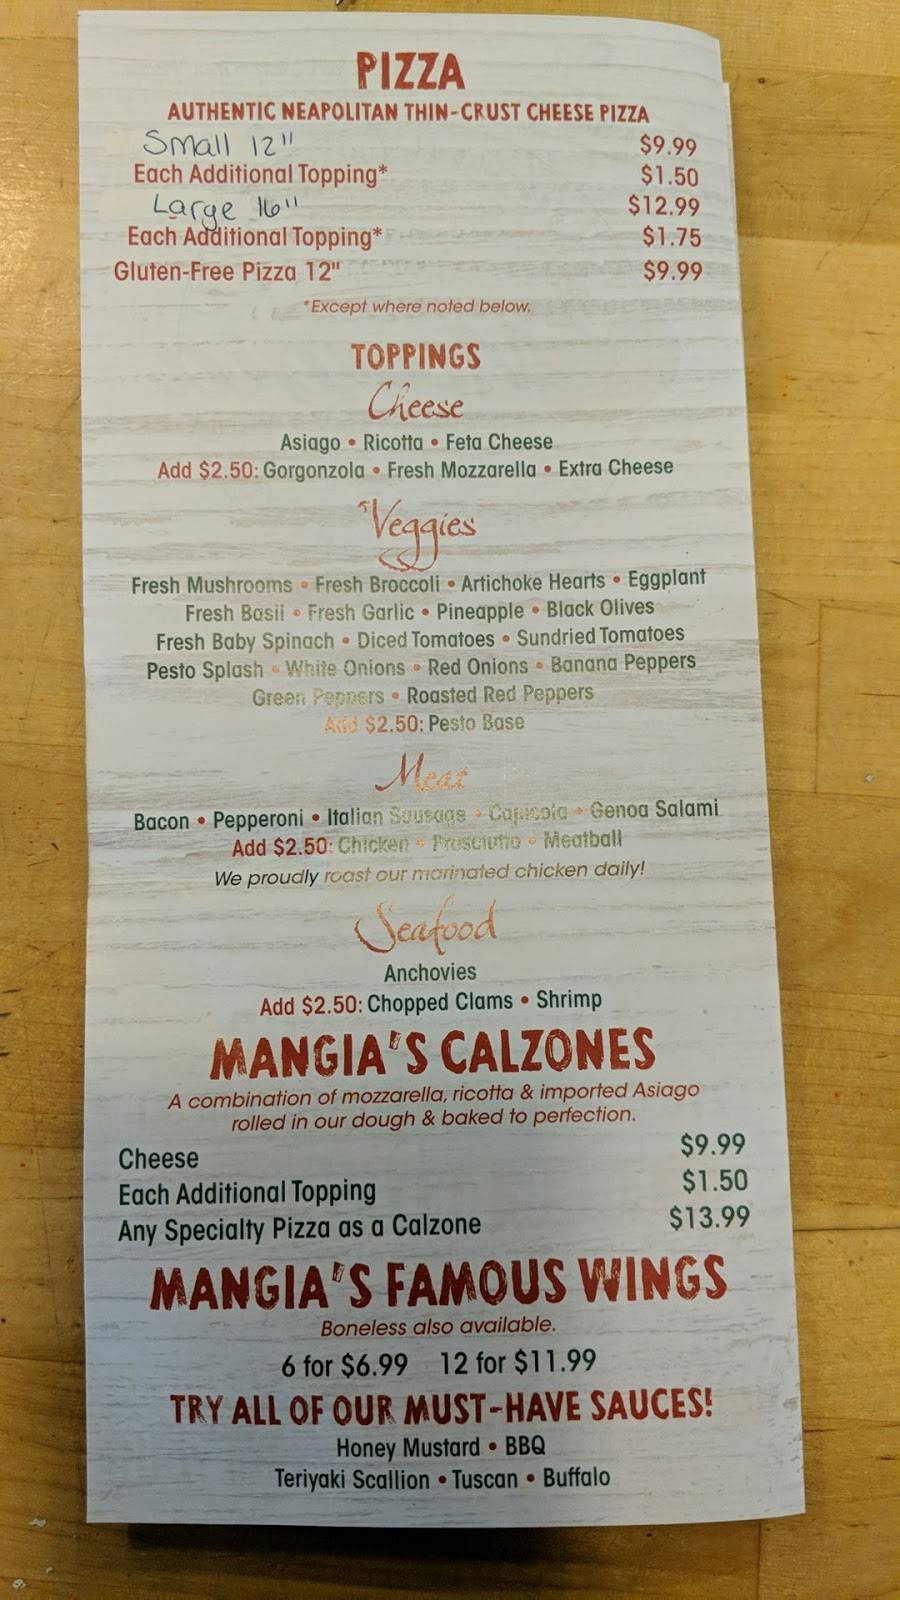 PIZZA
AUTHENTIC NEAPOLITAN THIN-CRUST CHEESE PIZZA
Small 12" $9.99
Each Additional Topping* $1.50
Large 16" $12.99
Each Additional Topping* $1.75
Gluten-Free Pizza 12" $9.99
*Except where noted below.
TOPPINGS
Cheese
Asiago • Ricotta • Feta Cheese
Add $2.50: Gorgonzola • Fresh Mozzarella • Extra Cheese
Veggies
Fresh Mushrooms • Fresh Broccoli • Artichoke Hearts • Eggplant
Fresh Basil • Fresh Garlic • Pineapple • Black Olives
Fresh Baby Spinach • Diced Tomatoes • Sundried Tomatoes
Pesto Splash • White Onions • Red Onions • Banana Peppers
Green Peppers • Roasted Red Peppers
Add $2.50: Pesto Base
Meat
Bacon • Pepperoni • Italian Sausage • Capicola • Genoa Salami
Add $2.50: Chicken • Prosciutto • Meatball
We proudly roast our marinated chicken daily!
Seafood
Anchovies
Add $2.50: Chopped Clams • Shrimp
MANGIA'S CALZONES
A combination of mozzarella, ricotta & imported Asiago
rolled in our dough & baked to perfection.
Cheese $9.99
Each Additional Topping $1.50
Any Specialty Pizza as a Calzone $13.99
MANGIA'S FAMOUS WINGS
Boneless also available.
6 for $6.99 12 for $11.99
TRY ALL OF OUR MUST-HAVE SAUCES!
Honey Mustard • BBQ
Teriyaki Scallion • Tuscan • Buffalo